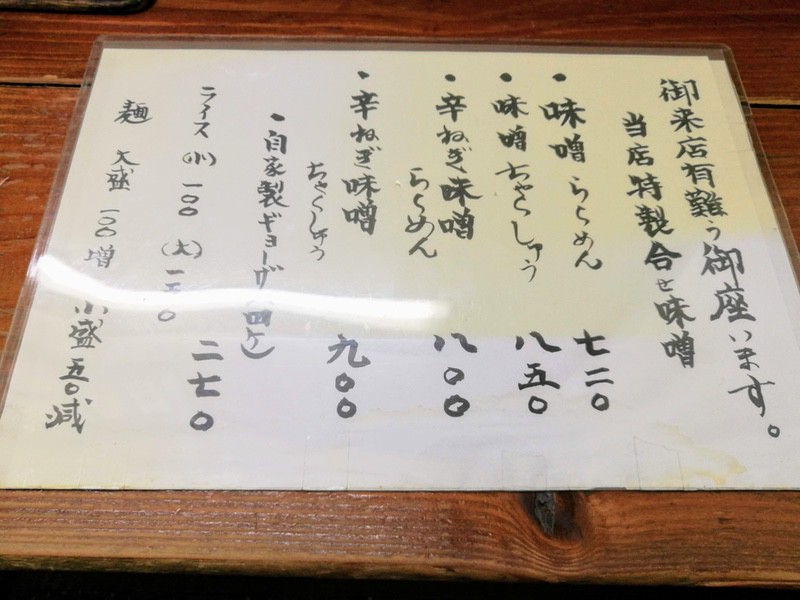 御来店有難う御座います。
当店特製合せ味噌
・味噌らぁめん 七二〇
・味噌ちゃぁしゅう 八五〇
・辛ねぎ味噌らぁめん 八〇〇
・辛ねぎ味噌ちゃぁしゅう 九〇〇
・自家製ギョーザ(四ケ) 二七〇
ライス(小)一〇〇 (大)一五〇
麺 大盛 一〇〇増 小盛 五〇減